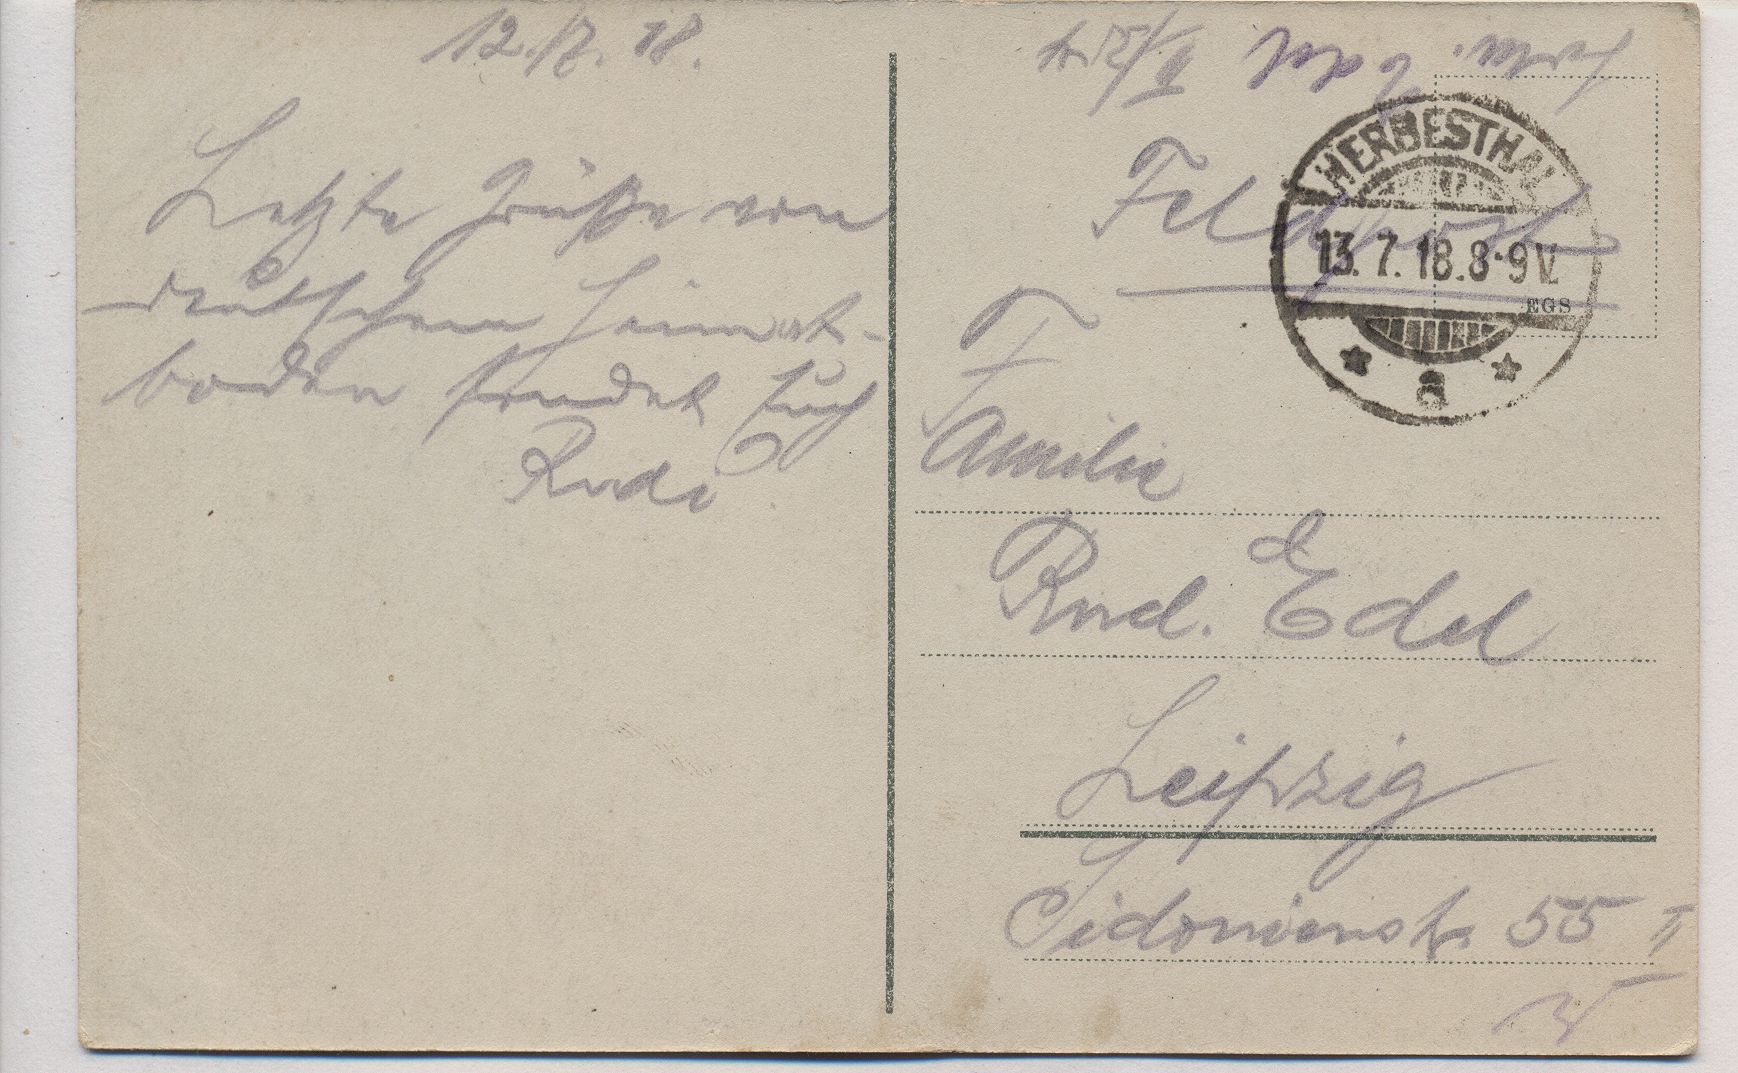 12./7. 18.
Letzte Grüße von
deutschem Heimat-
boden sendet Euch
Rudi
Feldpost
HERBESTHAL
13.7.18.8-9V.
EGS
* a *
Familie
Rud. Edel
Leipzig
Sidonienstr. 55 II